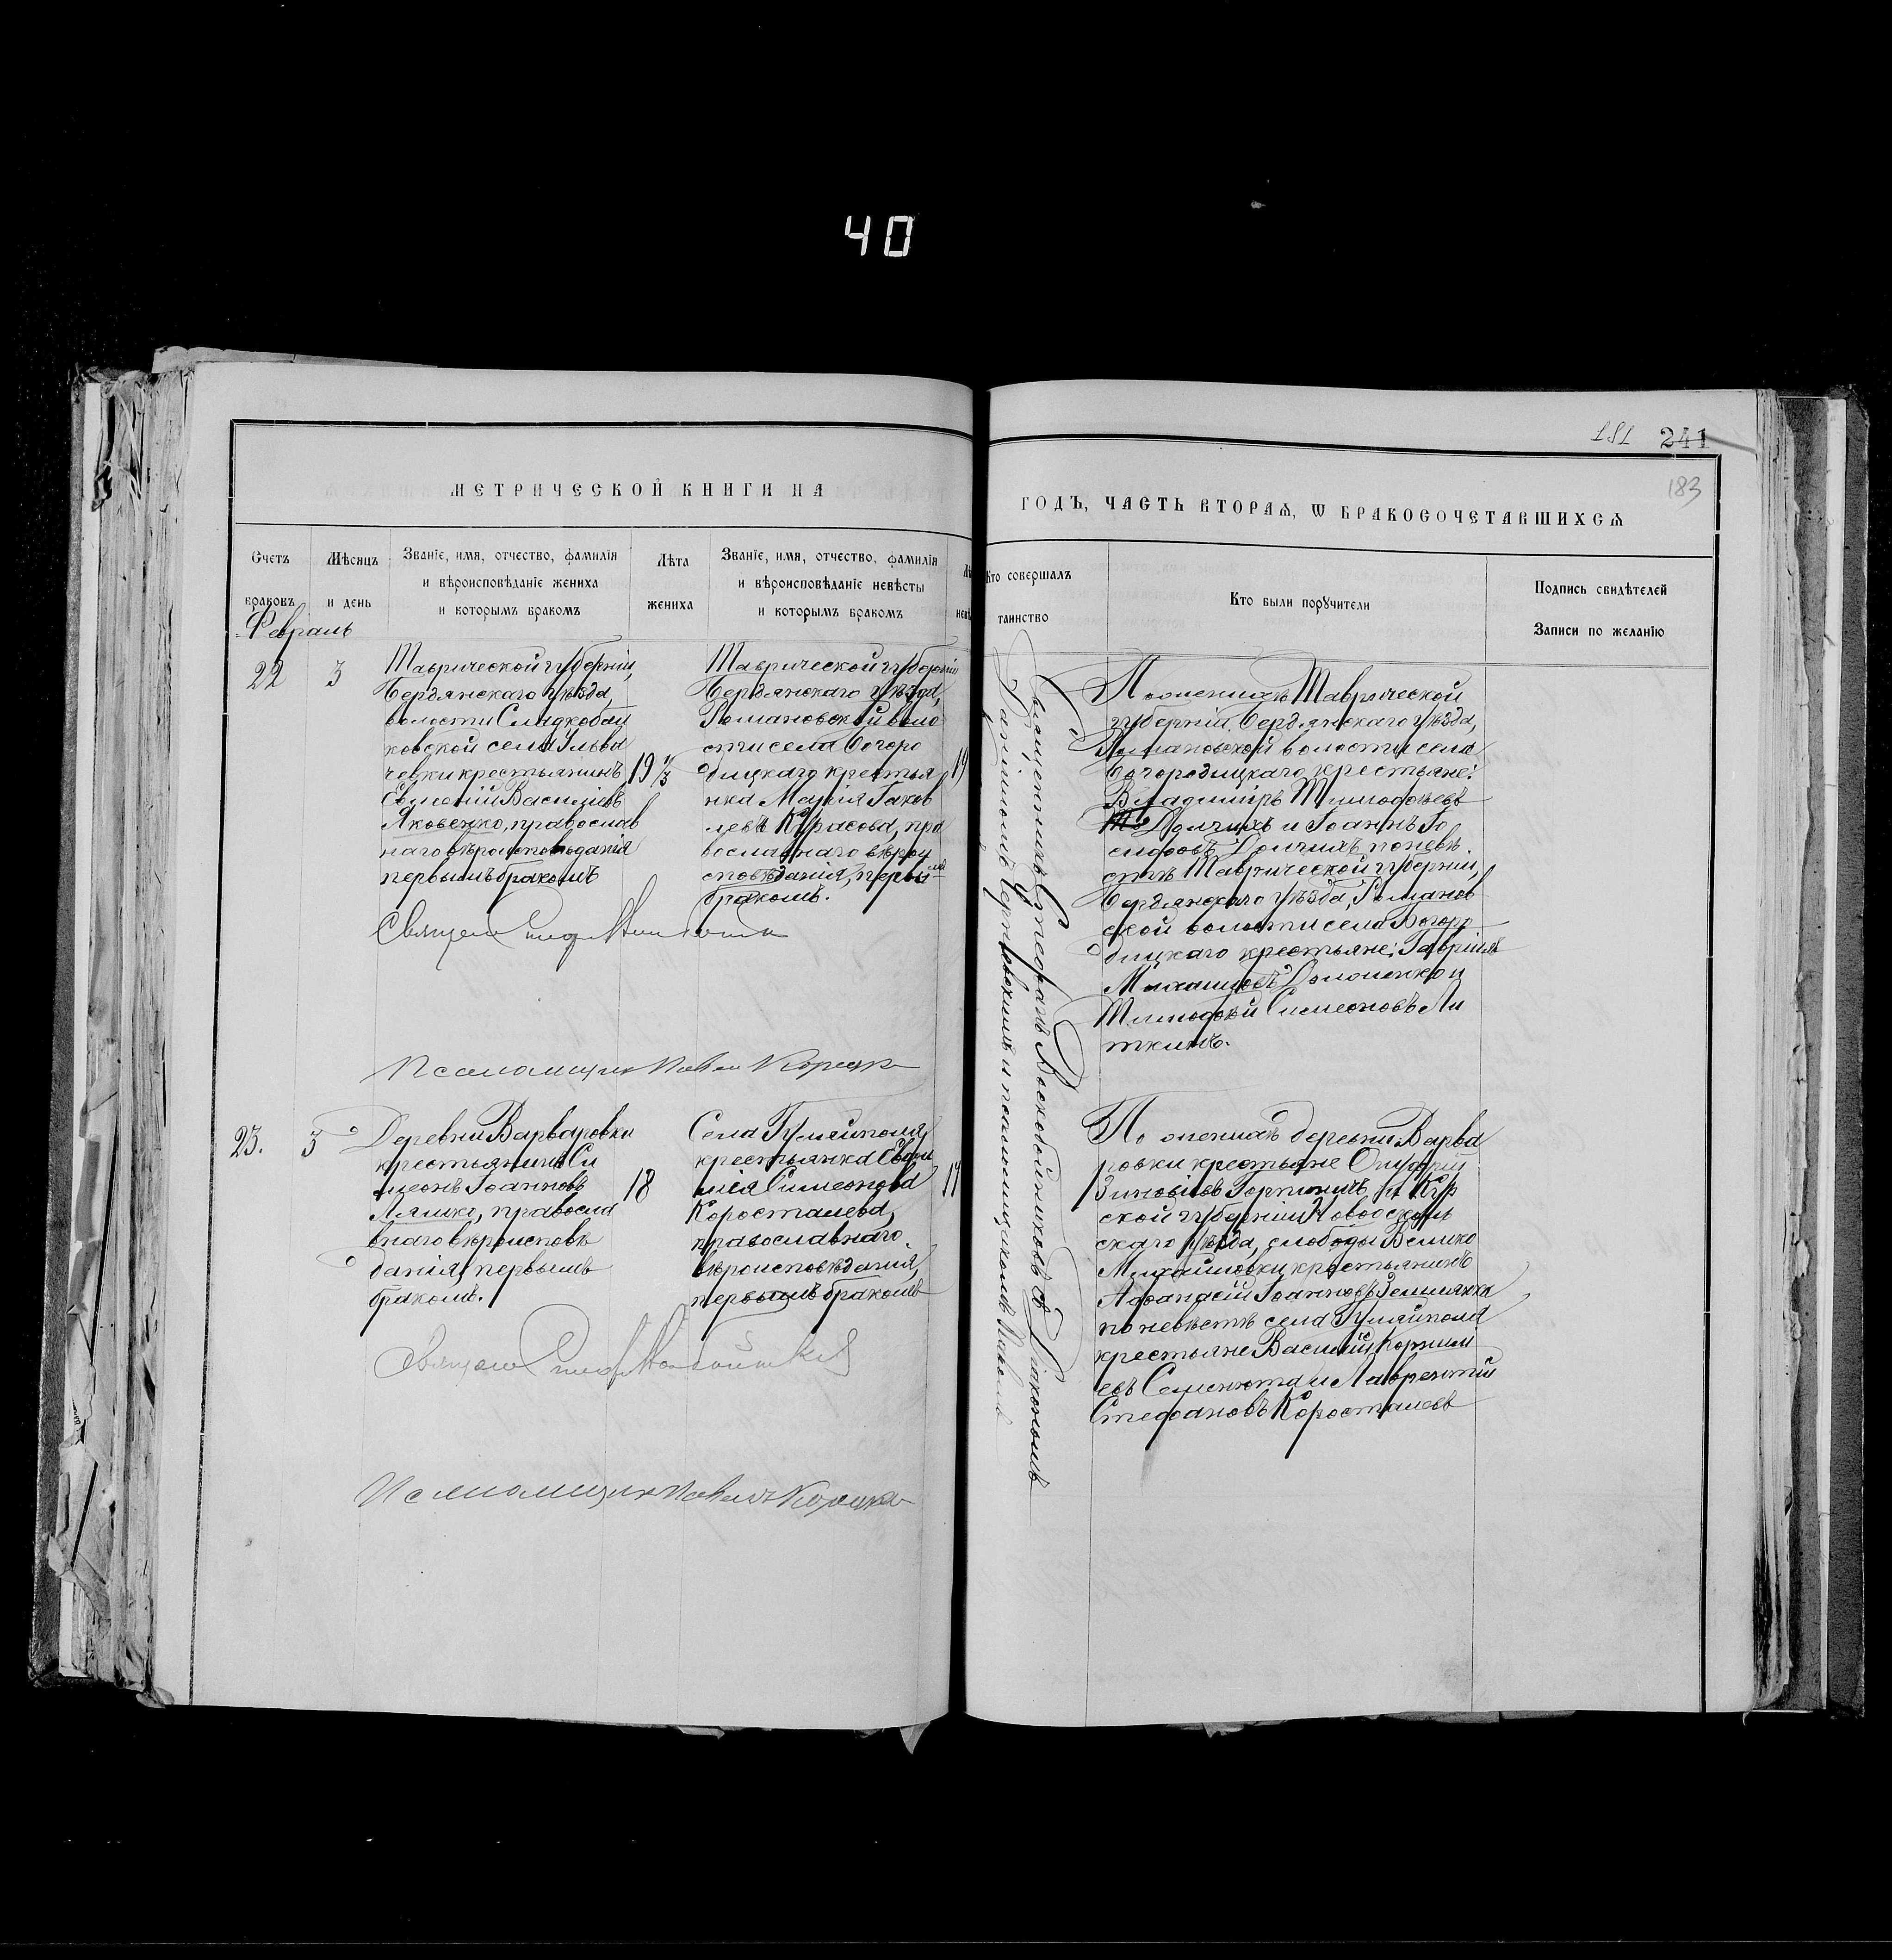 40
181 241
183
МЕТРИЧЕСКОЙ КНИГИ НА
ГОДЪ, ЧАСТЬ ВТОРАЯ, Ѡ БРАКОСОЧЕТАВШИХСЯ
Счетъ браковъ
Мѣсяцъ и день
Званіе, имя, отчество, фамилія
и вѣроисповѣданіе жениха
и которымъ бракомъ
Лѣта жениха
Званіе, имя, отчество, фамилія
и вѣроисповѣданіе невѣсты
и которымъ бракомъ
Кто совершалъ
таинство
Кто были поручители
Подпись свидѣтелей
Записи по желанію
Февраль
22
3
Таврической губерніи,
Бердянскаго уѣзда,
волости
ковской села
чевки крестьянинъ
Евменій Василіевъ
Яковенко, православ
наго вѣроисповѣданія
первымъ бракомъ
19 ½
Таврической губерніи
Бердянскаго уѣзда,
Романовской воло
сти села Богоро
дицкаго крестья
нка Марія Іаков
лева Курасова, пра
вославнаго вѣрои
сповѣданія, первымъ
бракомъ.
19
Священникъ Стефанъ Воскобойниковъ съ Діакономъ
По женихѣ Таврической
губерніи, Бердянскаго уѣзда,
Романовской волости села
Богородицкаго крестьяне:
Владиміръ Тимофѣевъ
Долчихъ и Іоаннъ Іо
сифовъ Долчихъ по невѣ
стѣ Таврической губерніи,
Бердянскаго уѣзда, Романов
ской волости села Богоро
дицкаго крестьяне: Гавріилъ
Михаиловъ Домошенко и
Тимофей Симеоновъ Ли
ткинъ.
Псаломщикъ Павелъ
23.
3
Деревни Варваровки
крестьянинъ Си
меонъ Іоанновъ
Ляшко, правосла
внаго вѣроисповѣ
данія, первымъ
бракомъ.
18
Села Гуляйполя
крестьянка Евѳи
мія Симеонова
Коросталева,
православнаго
вѣроисповѣданія,
первымъ бракомъ
17
По женихѣ деревни Варва
ровки крестьяне Онуфрій
Зиновіевъ и Кур
ской губерніи Новооскољ
скаго уѣзда, слободы Велико
Михайловки крестьянинъ
Аѳанасій Іоанновъ
по невѣстѣ села Гуляйполя
крестьяне Василій Корнил
евъ Семенюта и Лаврентій
Стефановъ Коросталевъ
Псаломщикъ Павелъ